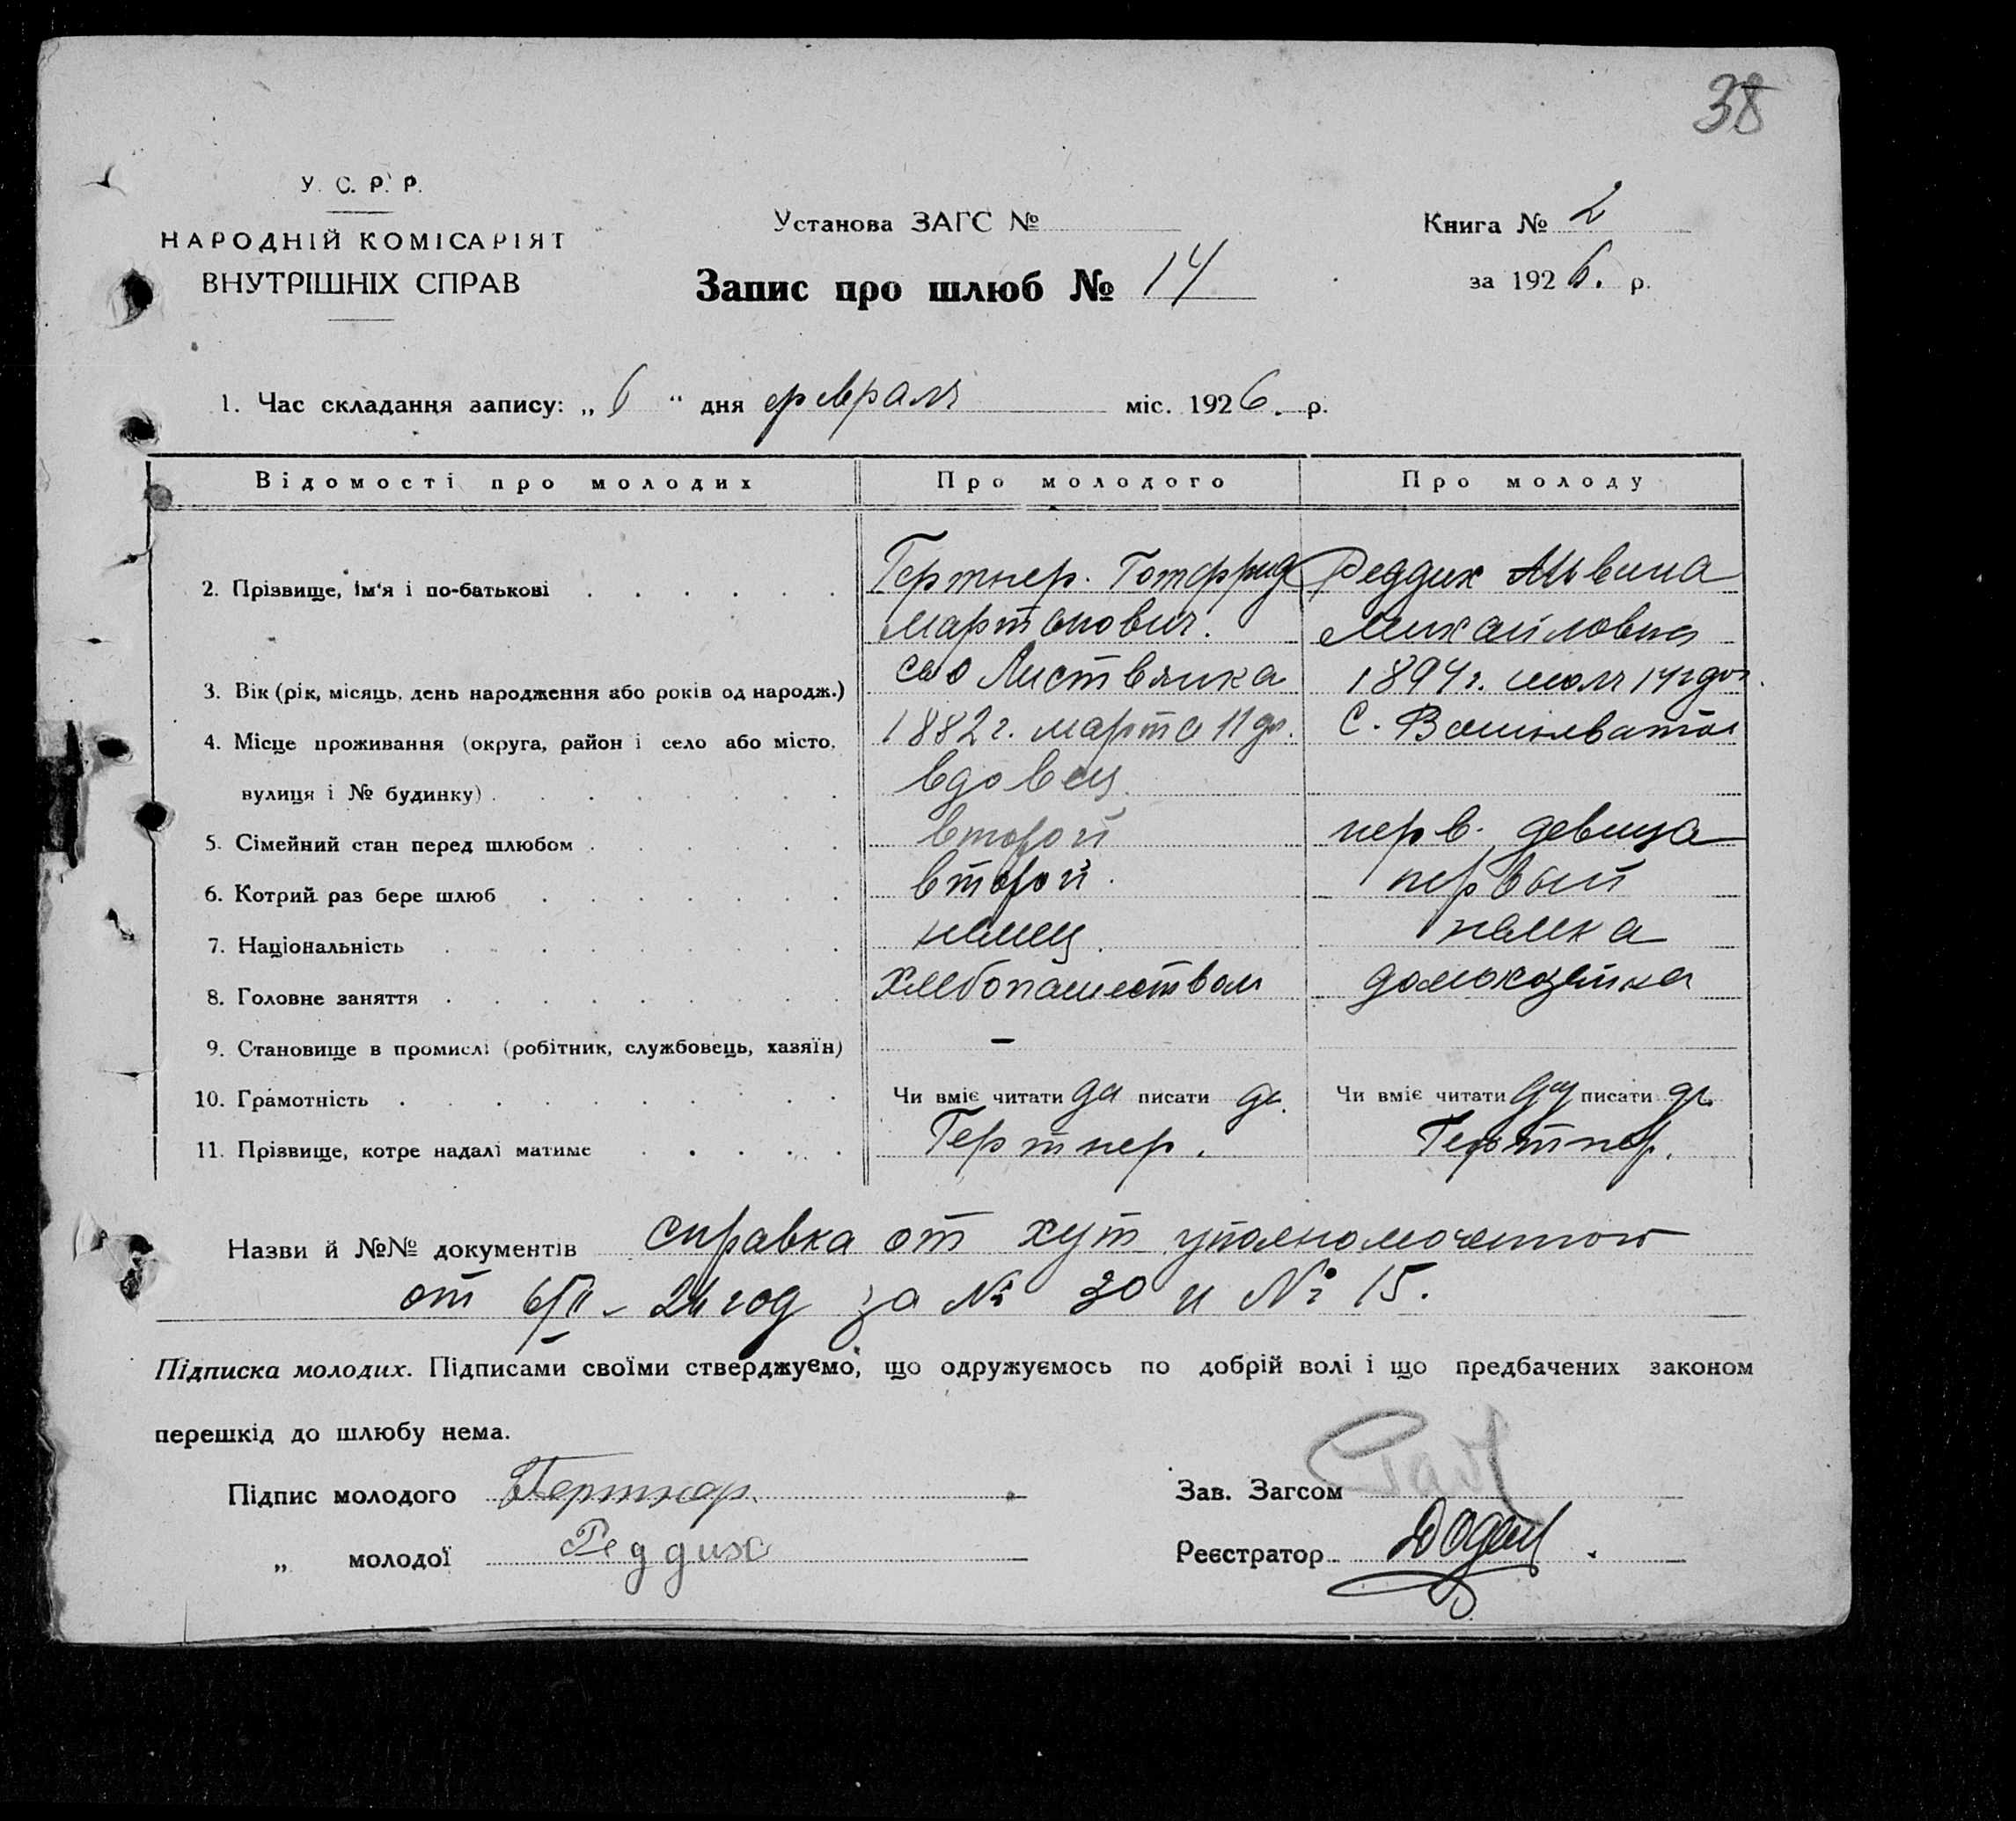 38
У. С. Р. Р.
НАРОДНІЙ КОМІСАРІЯТ
ВНУТРІШНІХ СПРАВ
Установа ЗАГС №
Запис про шлюб № 14
Книга № 2
за 1926. р.
1. Час складання запису: „ 6 “ дня февраля міс. 1926. р.
Відомості про молодих Про молодого Про молоду
2. Прізвище, ім'я і по-батькові Гертнер. Готфрид Реддих Альвина
Мартынович. Михайловна
3. Вік (рік, місяць, день народження або років од народж.) село Листвянка 1894 г. июля 14 дня.
4. Місце проживання (округа, район і село або місто, 1882 г. марта 11 дн. с.
вулиця і № будинку) вдовец.
5. Сімейний стан перед шлюбом второй перв. девица
6. Котрий раз бере шлюб второй. первый
7. Національність немец. немка
8. Головне заняття хлебопашеством домохозяйка
9. Становище в промислі (робітник, службовець, хазяїн) –
10. Грамотність Чи вміє читати да писати да. Чи вміє читати да писати да.
11. Прізвище, котре надалі матиме Гертнер. Гертнер.
Назви й №№ документів справка от хут уполномоченного
от 6/II – 24 год за № 30 и № 15.
Підписка молодих. Підписами своїми стверджуємо, що одружуємось по добрій волі і що предбачених законом
перешкід до шлюбу нема.
Підпис молодого Гертнер.
Зав. Загсом
„ молодої Реддих
Реєстратор